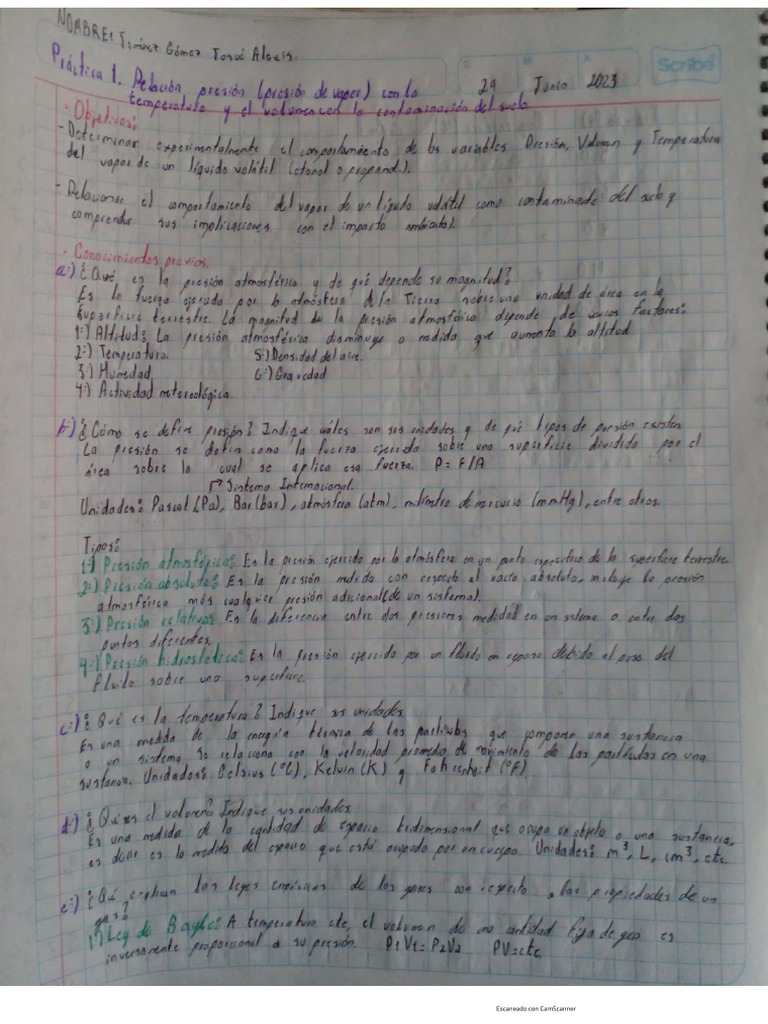 NOMBRE: Juárez Gómez Josué Alexis.
Scribe
Práctica 1. Relación presión (presión de vapor) con la
temperatura y el volumen con la contaminación del suelo
29 Junio 2023
- Objetivos:
- Determinar experimentalmente el comportamiento de las variables Presión, Volumen y Temperatura
del vapor de un líquido volátil (etanol o propanol).
- Relacionar el comportamiento del vapor de un líquido volátil como contaminante del suelo y
comprender sus implicaciones con el impacto ambiental.
- Conocimientos previos.
a:) ¿Qué es la presión atmosférica y de qué depende su magnitud?
Es la fuerza ejercida por la atmósfera de la Tierra sobre una unidad de área en la
superficie terrestre. La magnitud de la presión atmosférica depende de varios factores:
1:) Altitud: La presión atmosférica disminuye a medida que aumenta la altitud
2:) Temperatura. 5:) Densidad del aire.
3:) Humedad 6:) Gravedad
4:) Actividad metereológica.
b:) ¿Cómo se define presión? Indique cuáles son sus unidades y de qué tipos de presión existen
La presión se define como la fuerza ejercida sobre una superficie dividida por el
área sobre la cual se aplica esa fuerza. P = F/A
Sistema Internacional.
Unidades: Pascal (Pa), Bar (bar), atmósfera (atm), milímetro de mercurio (mmHg), entre otros.
Tipos:
1:) Presión atmosférica: Es la presión ejercida por la atmósfera en un punto específico de la superficie terrestre.
2:) Presión absoluta: Es la presión medida con respecto al vacío absoluto, incluye la presión
atmosférica más cualquier presión adicional (de un sistema).
3:) Presión relativa: Es la diferencia entre dos presiones medidas en un sistema o entre dos
puntos diferentes.
4:) Presión hidrostática: Es la presión ejercida por un fluido en reposo debido al peso del
fluido sobre una superficie.
c:) ¿Qué es la temperatura? Indique sus unidades
Es una medida de la energía térmica de las partículas que componen una sustancia
o un sistema. Se relaciona con la velocidad promedio de movimiento de las partículas en una
sustancia. Unidades: Celsius (°C), Kelvin (K) y Fahrenheit (°F).
d:) ¿Qué es el volumen? Indique sus unidades
Es una medida de la cantidad de espacio tridimensional que ocupa un objeto o una sustancia,
es decir es la medida del espacio que está ocupado por un cuerpo. Unidades: m³, L, cm³, etc.
e:) ¿Qué explican las leyes empíricas de los gases con respecto a las propiedades de un
gas?
1:) Ley de Boyle: A temperatura cte, el volumen de una cantidad fija de gas es
inversamente proporcional a su presión P1V1 = P2V2 PV = cte.
Escaneado con CamScanner